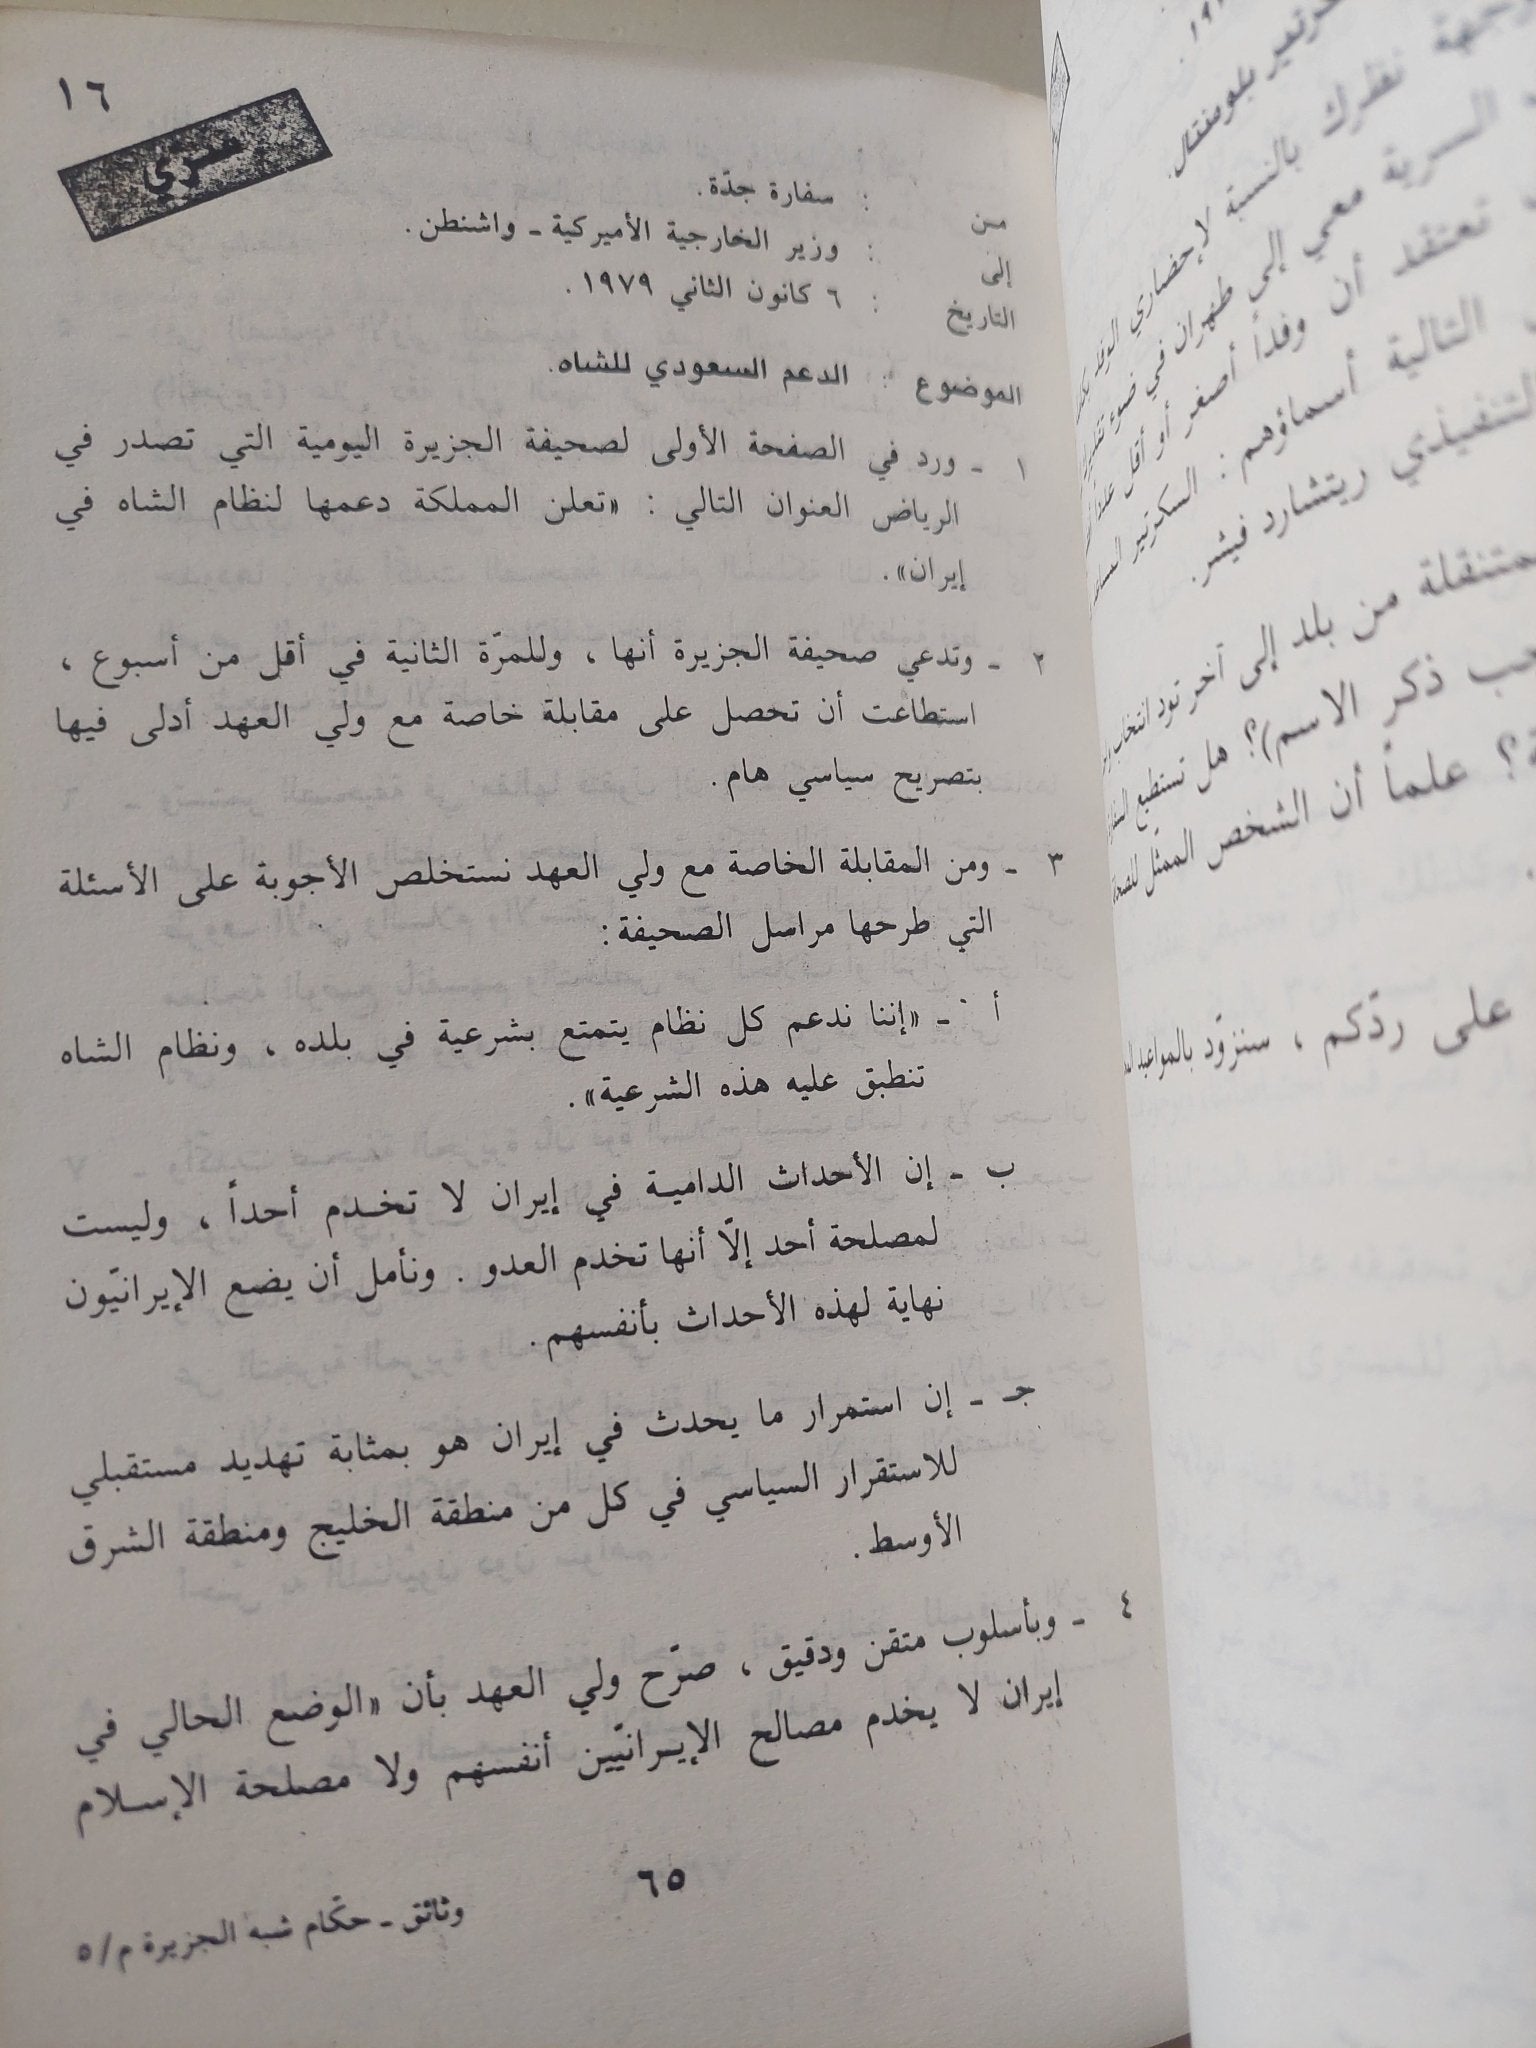 ١٦
سرّي
من : سفارة جدّة.
إلى : وزير الخارجية الأميركية ـ واشنطن.
التاريخ : ٦ كانون الثاني ١٩٧٩.
الموضوع : الدعم السعودي للشاه.
١ ـ ورد في الصفحة الأولى لصحيفة الجزيرة اليومية التي تصدر في
الرياض العنوان التالي : «تعلن المملكة دعمها لنظام الشاه في
إيران».
٢ ـ وتدعي صحيفة الجزيرة أنها ، وللمرّة الثانية في أقل من أسبوع ،
استطاعت أن تحصل على مقابلة خاصة مع ولي العهد أدلى فيها
بتصريح سياسي هام.
٣ ـ ومن المقابلة الخاصة مع ولي العهد نستخلص الأجوبة على الأسئلة
التي طرحها مراسل الصحيفة:
أ ـ «إننا ندعم كل نظام يتمتع بشرعية في بلده ، ونظام الشاه
تنطبق عليه هذه الشرعية».
ب ـ إن الأحداث الدامية في إيران لا تخدم أحداً ، وليست
لمصلحة أحد إلاّ أنها تخدم العدو . ونأمل أن يضع الإيرانيّون
نهاية لهذه الأحداث بأنفسهم.
جـ ـ إن استمرار ما يحدث في إيران هو بمثابة تهديد مستقبلي
للاستقرار السياسي في كل من منطقة الخليج ومنطقة الشرق
الأوسط.
٤ ـ وبأسلوب متقن ودقيق ، صرّح ولي العهد بأن «الوضع الحالي في
إيران لا يخدم مصالح الإيرانيّين أنفسهم ولا مصلحة الإسلام
٦٥
وثائق ـ حكّام شبه الجزيرة م/٥
بلومنتال.
وجهة نظرك بالنسبة لإحضاري الوفد
السرية معي إلى طهران في ضوء
تعتقد أن وفداً أصغر أو أقل
التالية أسماؤهم : السكرتير
التنفيذي ريتشارد فيشر.
من بلد إلى آخر تود انتخاب
ذكر الاسم)؟ هل تستطيع
؟ علماً أن الشخص الممثّل
على ردّكم ، سنزوّد بالمواعيد